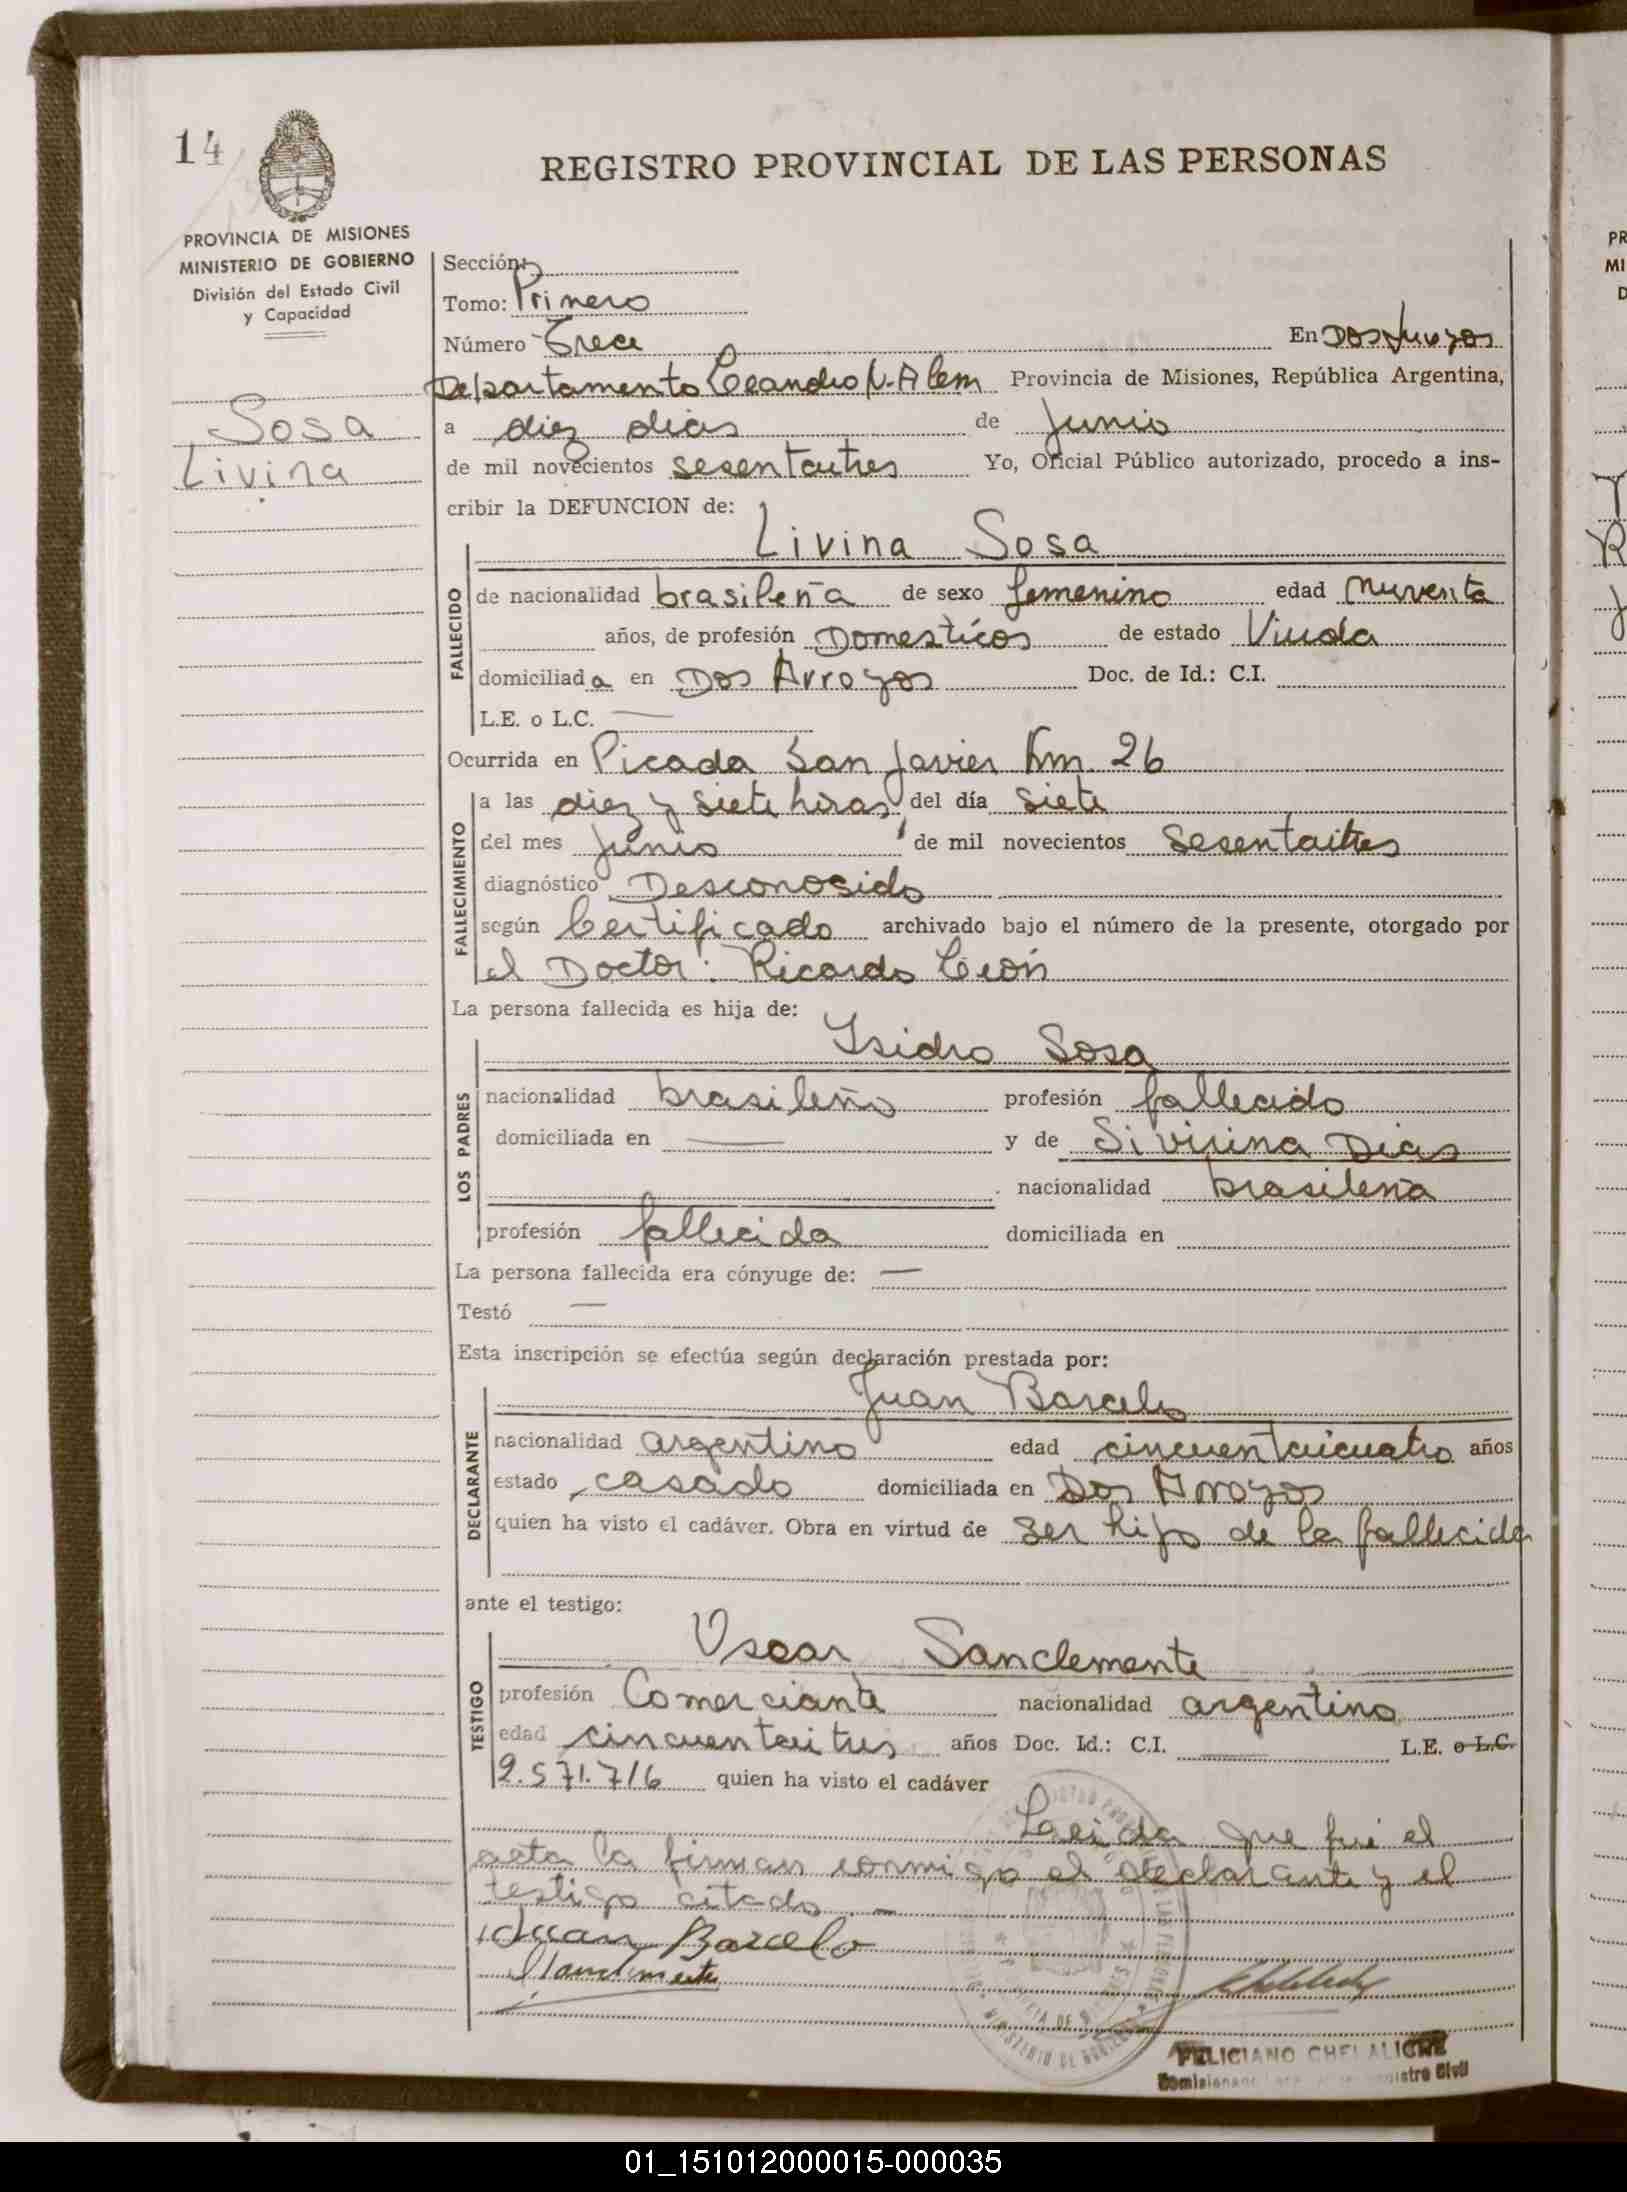 14
REGISTRO PROVINCIAL DE LAS PERSONAS
PROVINCIA DE MISIONES
MINISTERIO DE GOBIERNO
División del Estado Civil
y Capacidad
Sosa
Livina
Sección:
Tomo: Primero
Número Trece En Dos Arroyos
Departamento Leandro N. Alem Provincia de Misiones, República Argentina,
a diez dias de Junio
de mil novecientos sesentaitres Yo, Oficial Público autorizado, procedo a ins-
cribir la DEFUNCION de:
Livina Sosa
FALLECIDO
de nacionalidad brasileña de sexo femenino edad nuventa
años, de profesión Domesticos de estado Viuda
domiciliada en Dos Arroyos Doc. de Id.: C.I.
L.E. o L.C. —
Ocurrida en Picada San Javier Km. 26
FALLECIMIENTO
a las diez y siete horas, del día siete
del mes Junio de mil novecientos sesentaitres
diagnóstico Desconosido
según Certificado archivado bajo el número de la presente, otorgado por
el Doctor: Ricardo León
La persona fallecida es hija de:
Isidro Sosa
LOS PADRES
nacionalidad brasileño profesión fallecido
domiciliada en — y de Sivirina Dias
nacionalidad brasileña
profesión fallecida domiciliada en
La persona fallecida era cónyuge de: —
Testó —
Esta inscripción se efectúa según declaración prestada por:
Juan Barcelo
DECLARANTE
nacionalidad argentino edad cincuentaicuatro años
estado casado domiciliada en Dos Arroyos
quien ha visto el cadáver. Obra en virtud de ser hijo de la fallecida
ante el testigo:
Oscar Sanclemente
TESTIGO
profesión Comerciante nacionalidad argentino
edad cincuentaitres años Doc. Id.: C.I. — L.E. o L.C.
2.571.716 quien ha visto el cadáver
Leeida que fué el
acta la firman conmigo el declarante y el
testigo citado. —
Juan Barcelo
FELICIANO CHELALICHE
Registro Civil
01_151012000015-000035